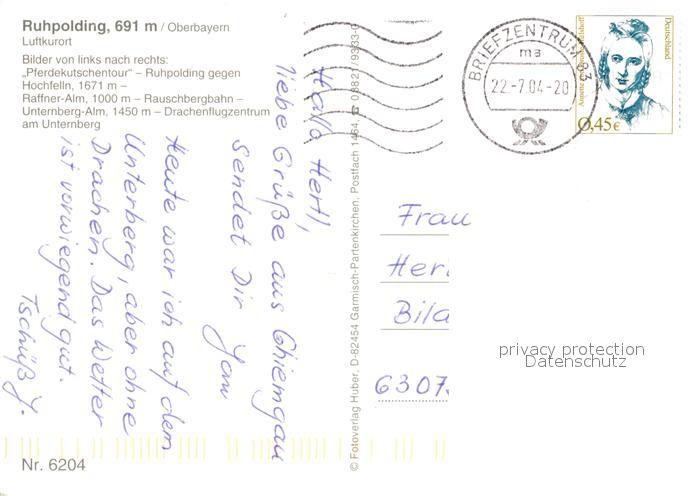 Ruhpolding, 691 m / Oberbayern
Luftkurort
Bilder von links nach rechts:
„Pferdekutschentour" – Ruhpolding gegen
Hochfelln, 1671 m –
Raffner-Alm, 1000 m – Rauschbergbahn –
Unternberg-Alm, 1450 m – Drachenflugzentrum
am Unternberg
Hallo Hertl,
liebe Grüße aus Chiemgau
Sendet Dir
Heute war ich auf dem
Unterberg, aber ohne
Drachen. Das Wetter
ist vorwiegend gut.
Tschüß Y.
Nr. 6204
© Fotoverlag Huber, D-82454 Garmisch-Partenkirchen, Postfach 1464, ☎ 08821/9333-0
BRIEFZENTRUM 83
ma
22.-7.04-20
Deutschland
0,45€
Frau
Her
Bila
6307
privacy protection
Datenschutz